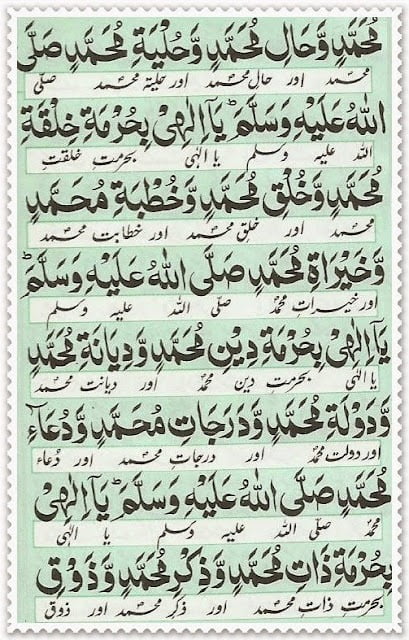 مُحَمَّدٍ وَّحَالِ مُحَمَّدٍ وَّحُلْيَةِ مُحَمَّدٍ صَلَّى
محمد اور حال محمد اور حلیۃ محمد صلی
اللّٰهُ عَلَيْهِ وَسَلَّمَ ؕ يَآ اِلٰهِيْ بِحُرْمَةِ خِلْقَةِ
اللہ علیہ وسلم یا الٰہی بحرمتِ خلقتِ
مُحَمَّدٍ وَّخُلُقِ مُحَمَّدٍ وَّخُطْبَةِ مُحَمَّدٍ
محمد اور خلق محمد اور خطابت محمد
وَّخَيْرَاةِ مُحَمَّدٍ صَلَّى اللّٰهُ عَلَيْهِ وَسَلَّمَ ؕ
اور خیرات محمدؐ صلی اللہ علیہ وسلم
يَآ اِلٰهِيْ بِحُرْمَةِ دِيْنِ مُحَمَّدٍ وَّدِيَانَةِ مُحَمَّدٍ
یا الٰہی بحرمتِ دین محمدؐ اور دیانت محمد
وَّدَوْلَةِ مُحَمَّدٍ وَّدَرَجَاتِ مُحَمَّدٍ وَّدُعَآءِ
اور دولت محمدؐ اور درجاتِ محمد اور دُعاء
مُحَمَّدٍ صَلَّى اللّٰهُ عَلَيْهِ وَسَلَّمَ ؕ يَآ اِلٰهِيْ
محمدؐ صلی اللہ علیہ وسلم یا الٰہی
بِحُرْمَةِ ذَاتِ مُحَمَّدٍ وَّذِكْرِ مُحَمَّدٍ وَّذَوْقِ
بحرمتِ ذاتِ محمد اور ذکرِ محمد اور ذوق